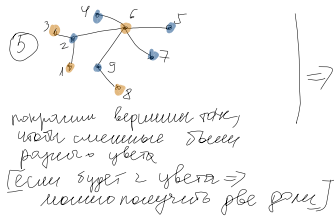 5
3
4
6
5
2
1
9
7
8
=>
покрасим вершины так,
чтобы смежные были
разного цвета
[если будет 2 цвета =>
можно получить две доли]